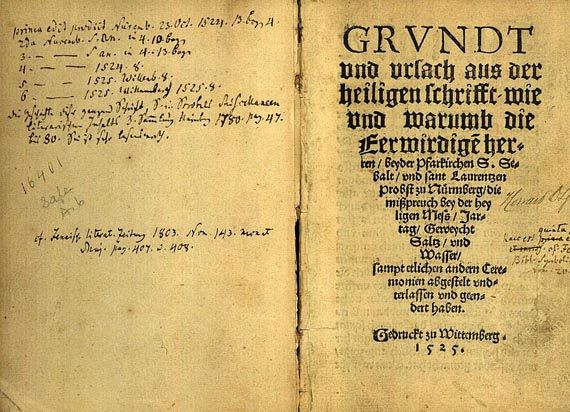 prima edit. prodiit Nuremb. 23. Oct. 1524. 13. bog. 4.
2da Nuremb. S. an. in 4. 10. bog.
3. — — S. an. in 4. 13. bog.
4 — — 1524. 8.
5 — — 1525. Wittenb. 8.
6 — — 1525. Wittenberg 1525. 8.
1780. pag. 47.
bis 80.
16401
cf. literat. Zeitung 1803. Nov. 143.
pag. 407. 408.
GRVNDT
vnd vrsach aus der
heiligen schrifft/ wie
vnd warumb die
Eerwirdigē her-
ren/ beyder Pfarkirchen S. Se-
balt/ vnd sant Laurentzen
Probst zu Nürmberg/ die
mißpreuch bey der hey
ligen Mess/ Jar-
tag/ Geweycht
Saltz/ vnd
Wasser/
sampt etlichen andern Cere-
monien abgestelt vnd-
terlassen vnd geen-
dert haben.
Gedruckt zu Wittemberg.
1525.
quinta